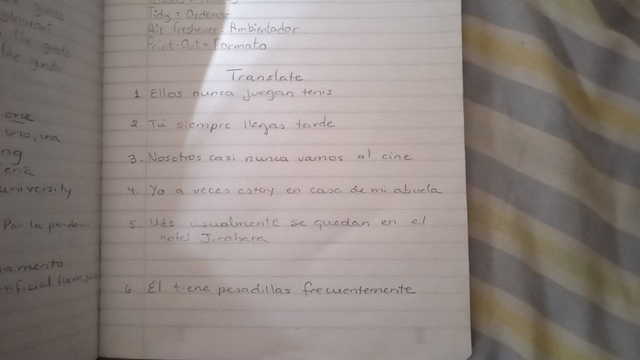 Tidy = Ordenar
Air freshener = Ambientador
Print-Out = Formato
Translate
1 Ellos nunca juegan tenis
2 Tú siempre llegas tarde
3. Nosotros casi nunca vamos al cine
4. Yo a veces estoy en casa de mi abuela
5. Uds usualmente se quedan en el
hotel Jirahara
6 El tiene pesadillas frecuentemente
the guests
the guests
one
uno, una
ng
enia
university
Por la pandem
amento